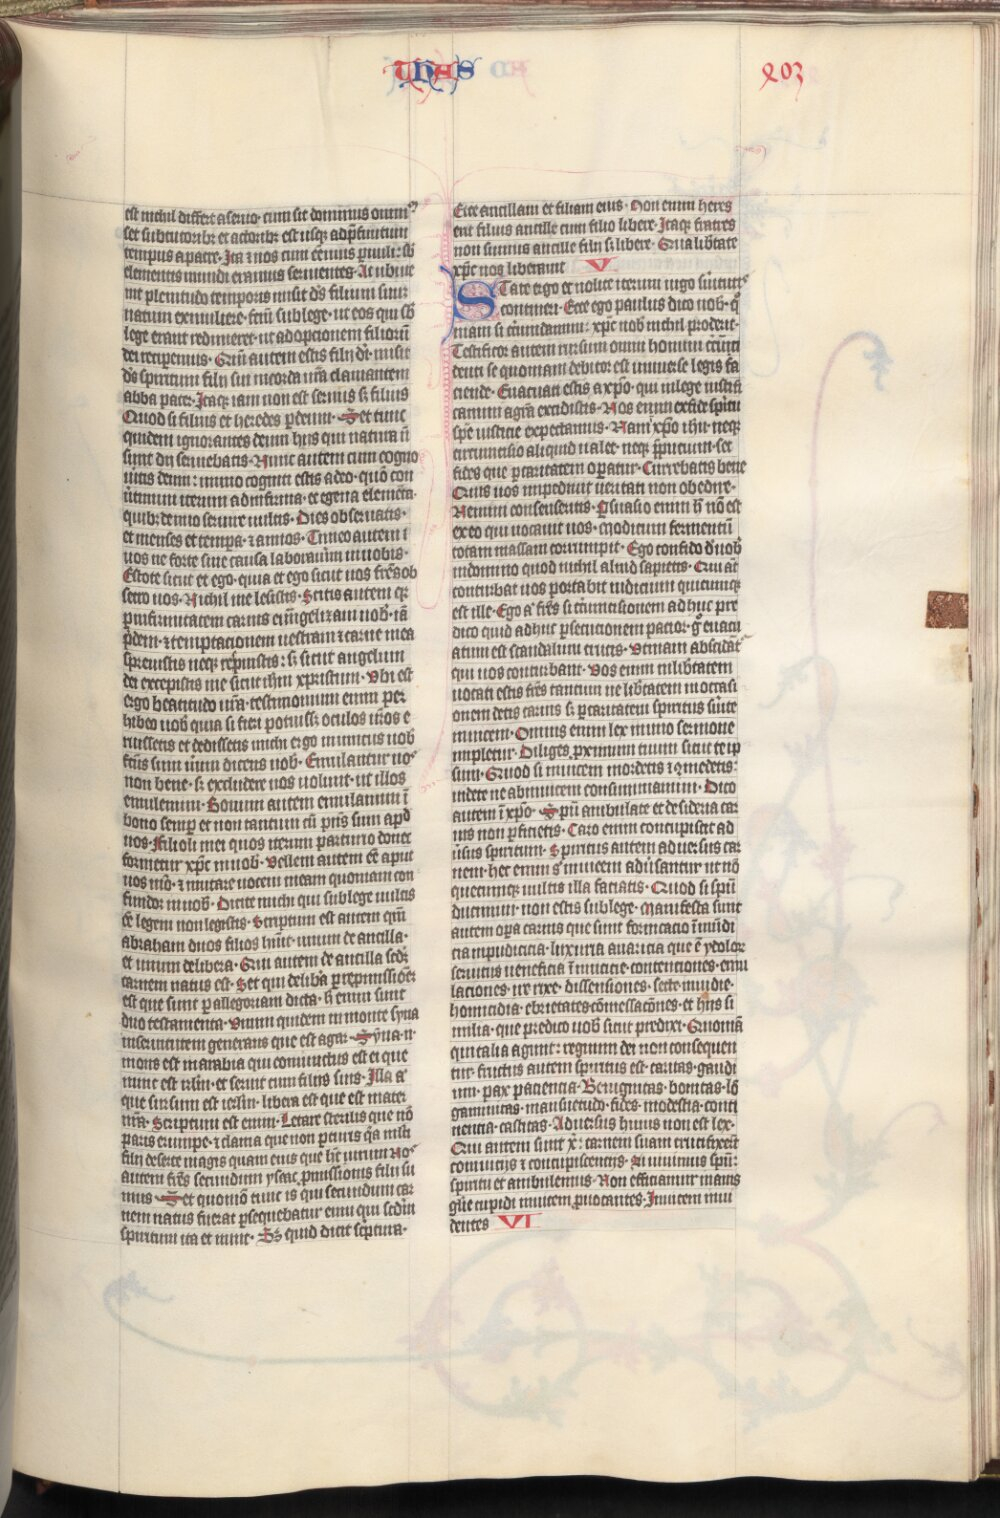 thas
203
est nichil differt a seruo cum sit dominus omniu
set sub tutoribꝫ et actoribꝫ est usqꝫ ad p̄finitum
tempus a patre · Ita ⁊ nos cum eēmus paruuli: sb̄
elementis mundi eramus seruientes · At ubi ue
nit plenitudo temporis misit dꝰs filium suū:
natum ex muliere · fcm̄ sub lege · ut eos qui sb̄
lege erant redimeret · ut adopcionem filiorū
dei reciperemus · Qm̄ autem estis filij dī · misit
dꝰs spiritum filij sui in corda ura clamantem
abba pater · Itaqꝫ iam non est seruus sꝫ filius
Quod si filius et heredes p deum · Set tunc
quidem ignorantes deum hijs qui natura nō
sunt dij seruiebatis · Nunc autem cum cogno
uitis deum: immo cogniti estis a deo · quō con
ūtimini iterum ad infirma · et egena elementa ·
quibꝫ denuo seruire uultis · Dies obseruatis ·
et menses et tempora · ⁊ annos · Timeo autem ī
uos ne forte sine causa laborauim in uobis ·
Estote sicut et ego · quia et ego sicut uos fr̄s ob
secro uos · Nichil me lesistis · Scitis autem qꝛ
p infirmitatem carnis euāgelizaui uob · iā
p̄dem · ⁊ temptacionem uestram ī carne mea
spreuistis neqꝫ respuistis: sꝫ sicut angelum
dei excepistis me sicut ihm xpristum · Vbi est
ergo beatitudo ura · testimonium enim per
hibeo uob quia si fieri potuissꝫ oculos uros e
ruissetis et dedissetis michi ergo inimicus uob
fcūs sum uerum dicens uob · Emulantur uos
non bene · sꝫ excludere uos uolunt · ut illos
emulemini · Bonum autem emulamini ī
bono semper et non tantum cū pñs sum apd
uos · Filioli mei quos iterum parturio donec
formetur xpc in uob · Vellem autem eē aput
uos mō · ⁊ mutare uocem meam quoniam con
fundor in uob · Dicite michi qui sub lege uultis
eē legem non legistis · Scriptum est autem qm̄
abraham duos filios hūit · unum de ancilla ·
et unum de libera · Set qui autem de ancilla scdm
carnem natus est · Set qui de libera p repromissionē
est que sunt p allegoriam dicta · h enim sunt
duo testamenta · Vnum quidem in monte syna
in seruitutem generans que est agar · Syna ·
mons est in arabia qui coniunctus est ei que
nunc est irlm · et seruit cum filijs suis · Illa a
que sursum est ierlm · libera est que est mater
nra · Scriptum est enim · Letare sterilis que nō
paris erumpe · ⁊ clama que non parturis qa mlti
filij deserte magis quam eius que ht̄ uirum nos
autem fr̄es secundum ysaac promissionis filij su
mus Set quomō tunc is qui secundum car
nem natus fuerat persequebatur eum qui scdm
spiritum ita et nunc · Sꝫ quid dicit scptura ·
Eice ancillam et filium eius · Non enim heres
erit filius ancille cum filio libere · Itaqꝫ fratres
non sumus ancille filij sꝫ libere · Qua libtate
xpc nos liberauit V
STate ergo et nolite iterum iugo suitutis
contineri · Ecce ego paulus dico uob · qm̄
niam si circumdamini: xpc uob nichil proderit ·
Testificor autem rursum omni homini circūci
denti se quoniam debitor est uniuerse legis fa
ciende · Euacuati estis a xpo · qui in lege iustifi
camini a gra excidistis · Nos enim ex fide spiritu
spe iusticie expectamus · Nam ī xpo ihu neqꝫ
circumcisio aliquid ualet · neqꝫ p̄putium · set
fides que p caritatem operatur · Currebatis bene
Quis uos impediuit ueritati non obedire ·
Nemini consenseritis · Persuasio enim h nō est
ex eo qui uocauit uos · Modicum fermentū
totam massam corrumpit · Ego confido d uob
in domino quod nichil aliud sapietis · Qui aūt
conturbat uos portabit iudicium quicumqꝫ
est ille · Ego a fr̄es si circumcisionem adhuc pre
dico quid adhuc persecutionem patior · gͦ euacu
atum est scandalum crucis · Vtinam abscidāt
qui uos conturbant · Vos enim in libtatem
uocati estis fr̄es tantum ne libtatem in occasi
onem detis carnis sꝫ p caritatem spiritus suite
inuicem · Omnis enim lex in uno sermone
impletur · Diliges proximum tuum sicut te ip
sum · Quod si inuicem mordetis ⁊ comedetis:
uidete ne ab inuicem consummamini · Dico
autem ī xpo · Spū ambulate et desideria car
nis non perficietis · Caro enim concupiscit ad
uersus spiritum · Spiritus autem aduersus car
nem · hec enim sꝰ inuicem adūsantur ut nō
quecumqꝫ uultis illa faciatis · Quod si spū
ducimini · non estis sub lege · Manifesta sunt
autem opera carnis que sunt fornicacio īmūdi
cia inpudicicia · luxuria auaricia que ē ydolor
seruitus ueneficia īimicicie · contenciones · emu
laciones · ire rixe · dissensiones · secte inuidie ·
homicidia · ebrietates · comessacōnes · et hijs si
milia · que predico uob sicut predixi · Quoniā
qui talia agunt: regnum dei non consequen
tur · fructus autem spiritus est · caritas · gaudi
um · pax paciencia · Benignitas · bonitas · lō
gaminitas · mansuetudo · fides · modestia · conti
nencia · castitas · Aduersus huius non est lex ·
Qui autem sunt x̄: carnem suam crucifixerūt
cum uicijs ⁊ concupiscencijs · Si uiuimus spū:
spiritu et ambulemus · Non efficiamur inanis
glie cupidi inuicem prouocantes · Inuicem inui
dentes VI